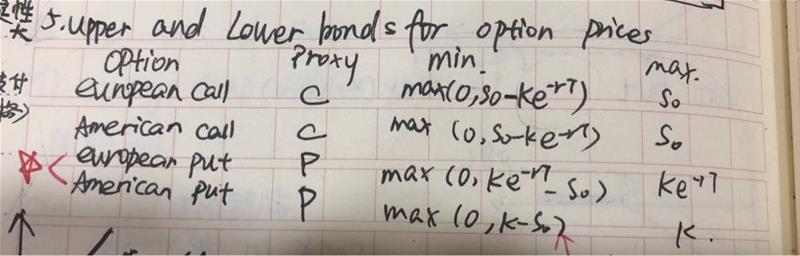 定性
大
5. upper and Lower bonds for option prices
option Proxy min. max.
european call C max(0, S0-Ke-rT) S0
American call C max (0, S0-Ke-rT) S0
european put P max (0, Ke-rT - S0) Ke-rT
American put P max (0, K-S0) K.